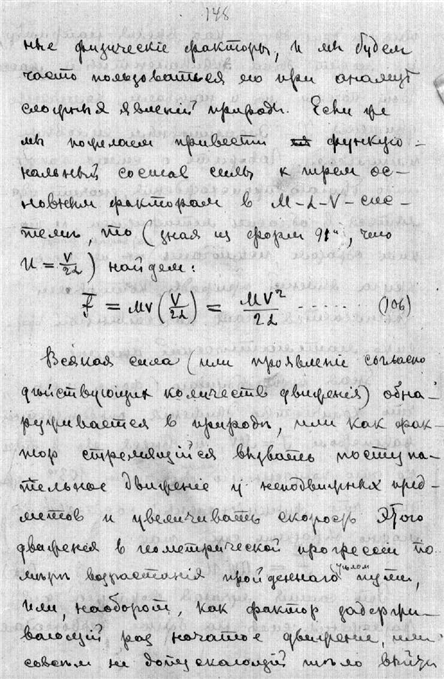 148
ные физическіе факторы, и мы будем
часто пользоваться ею при анализѣ
сложныя явленій природы. Если же
мы пожелаем привести функціо-
нальный состав силы к трем ос-
новным факторам в M-L-V-сис-
темѣ, то (зная из форм 91ой, что
n = V/2L) найдем:
F = MV (V/2L) = MV²/2L ..... (106)
Всякая сила (или проявленіе согласно
дѣйствующих количеств движенія) обна-
руживается в природѣ, или как фак-
тор стремящійся вызвать поступа-
тельное движеніе у неподвижных пред-
метов и увеличивать скорость этого
движенія в геометрической прогрессіи по
мѣрѣ возрастанія пройденнаго пути,
или, наоборот, как фактор задержи-
вающій раз начатое движеніе, или
совсем не допускающій тѣло выйти